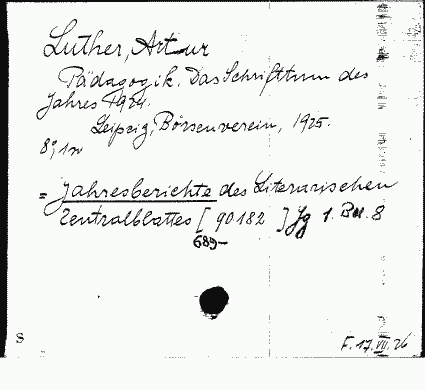 Luther, Artur
Pädagogik. Das Schrifttum des
Jahres 1924.
Leipzig, Börsenverein, 1925.
8°, 1 n
= Jahresberichte des Literarischen
Zentralblattes [ 90182 ] Jg 1. Bd. 8
689-
S
F. 17. VII. 26